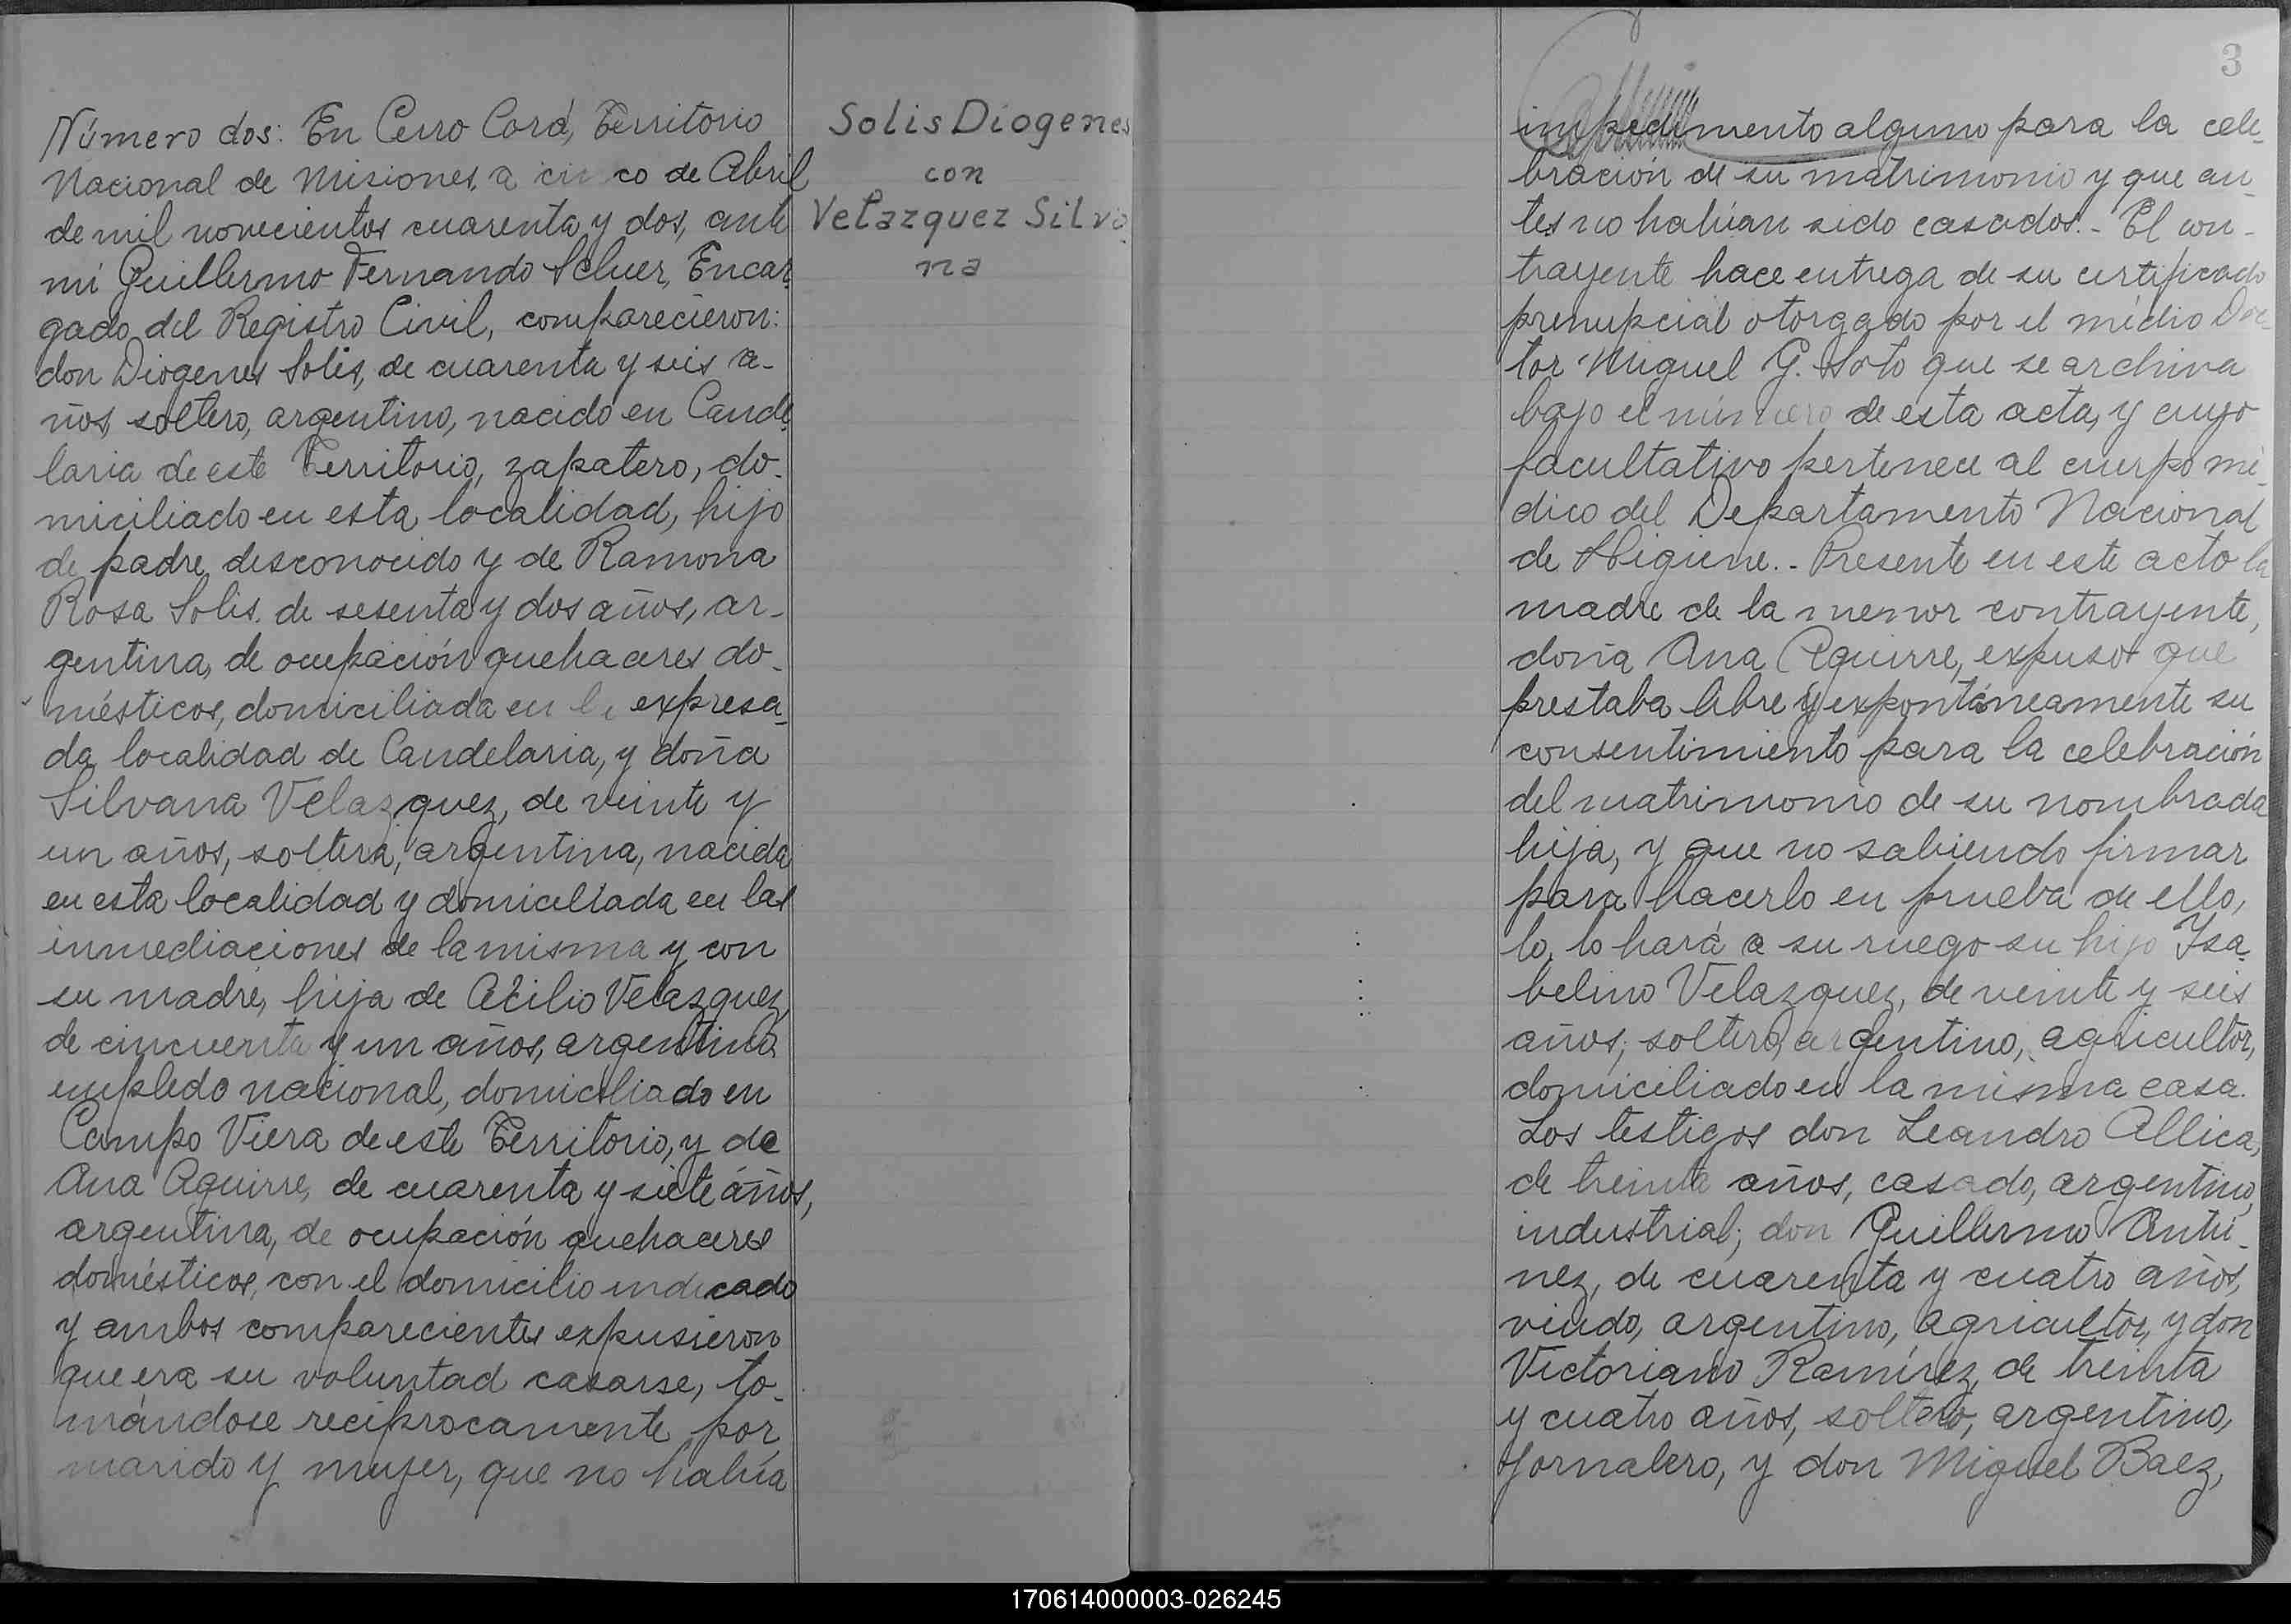 Número dos: En Cerro Corá, Territorio
Nacional de Misiones, a cinco de Abril
de mil novecientos cuarenta y dos, ante
mi Guillermo Fernando Encar-
gado del Registro Civil, comparecieron:
don Diogenes Solis, de cuarenta y seis a-
ños, soltero, argentino, nacido en Cande-
laria de este Territorio, zapatero, do-
miciliado en esta localidad, hijo
de padre desconocido y de Ramona
Rosa Solis, de sesenta y dos años, ar-
gentina, de ocupación quehaceres do-
mésticos, domiciliada en la expresa-
da localidad de Candelaria, y doña
Silvana Velazquez, de veinte y
un años, soltera, argentina, nacida
en esta localidad y domiciliada en las
inmediaciones de la misma y con
su madre, hija de Atilio Velazquez,
de cincuenta y un años, argentino,
empledo nacional, domiciliado en
Campo Viera de este Territorio, y de
Ana Aguirre, de cuarenta y siete años,
argentina, de ocupación quehaceres
domésticos, con el domicilio indicado
y ambos comparecientes expusieron
que era su voluntad casarse, to-
mándose reciprocamente por
marido y mujer, que no había
Solis Diogenes
con
Velazquez Silva
na
3
impedimento alguno para la cele-
bración de su matrimonio y que an-
tes no habían sido casados.- El con-
trayente hace entrega de su certificado
prenupcial otorgado por el médio Doc-
tor Miguel G. Soto que se archiva
bajo el número de esta acta, y cuyo
facultativo pertenece al cuerpo mé-
dico del Departamento Nacional
de Higiene.- Presente en este acto la
madre de la menor contrayente,
doña Ana Aguirre, expuso que
prestaba libre y expontáneamente su
consentimiento para la celebración
del matrimonio de su nombrada
hija, y que no sabiendo firmar
para hacerlo en prueba de ello,
lo, lo hará a su ruego su hijo Ysa-
belino Velazquez, de veinte y seis
años, soltero, argentino, agricultor,
domiciliado en la misma casa.
Los testigos don Leandro Allica,
de treinta años, casado, argentino,
industrial; don Guillermo Antú-
nez, de cuarenta y cuatro años,
viudo, argentino, agricultor, y don
Victoriano Ramírez, de treinta
y cuatro años, soltero, argentino,
jornalero, y don Miguel Baez,
170614000003-026245